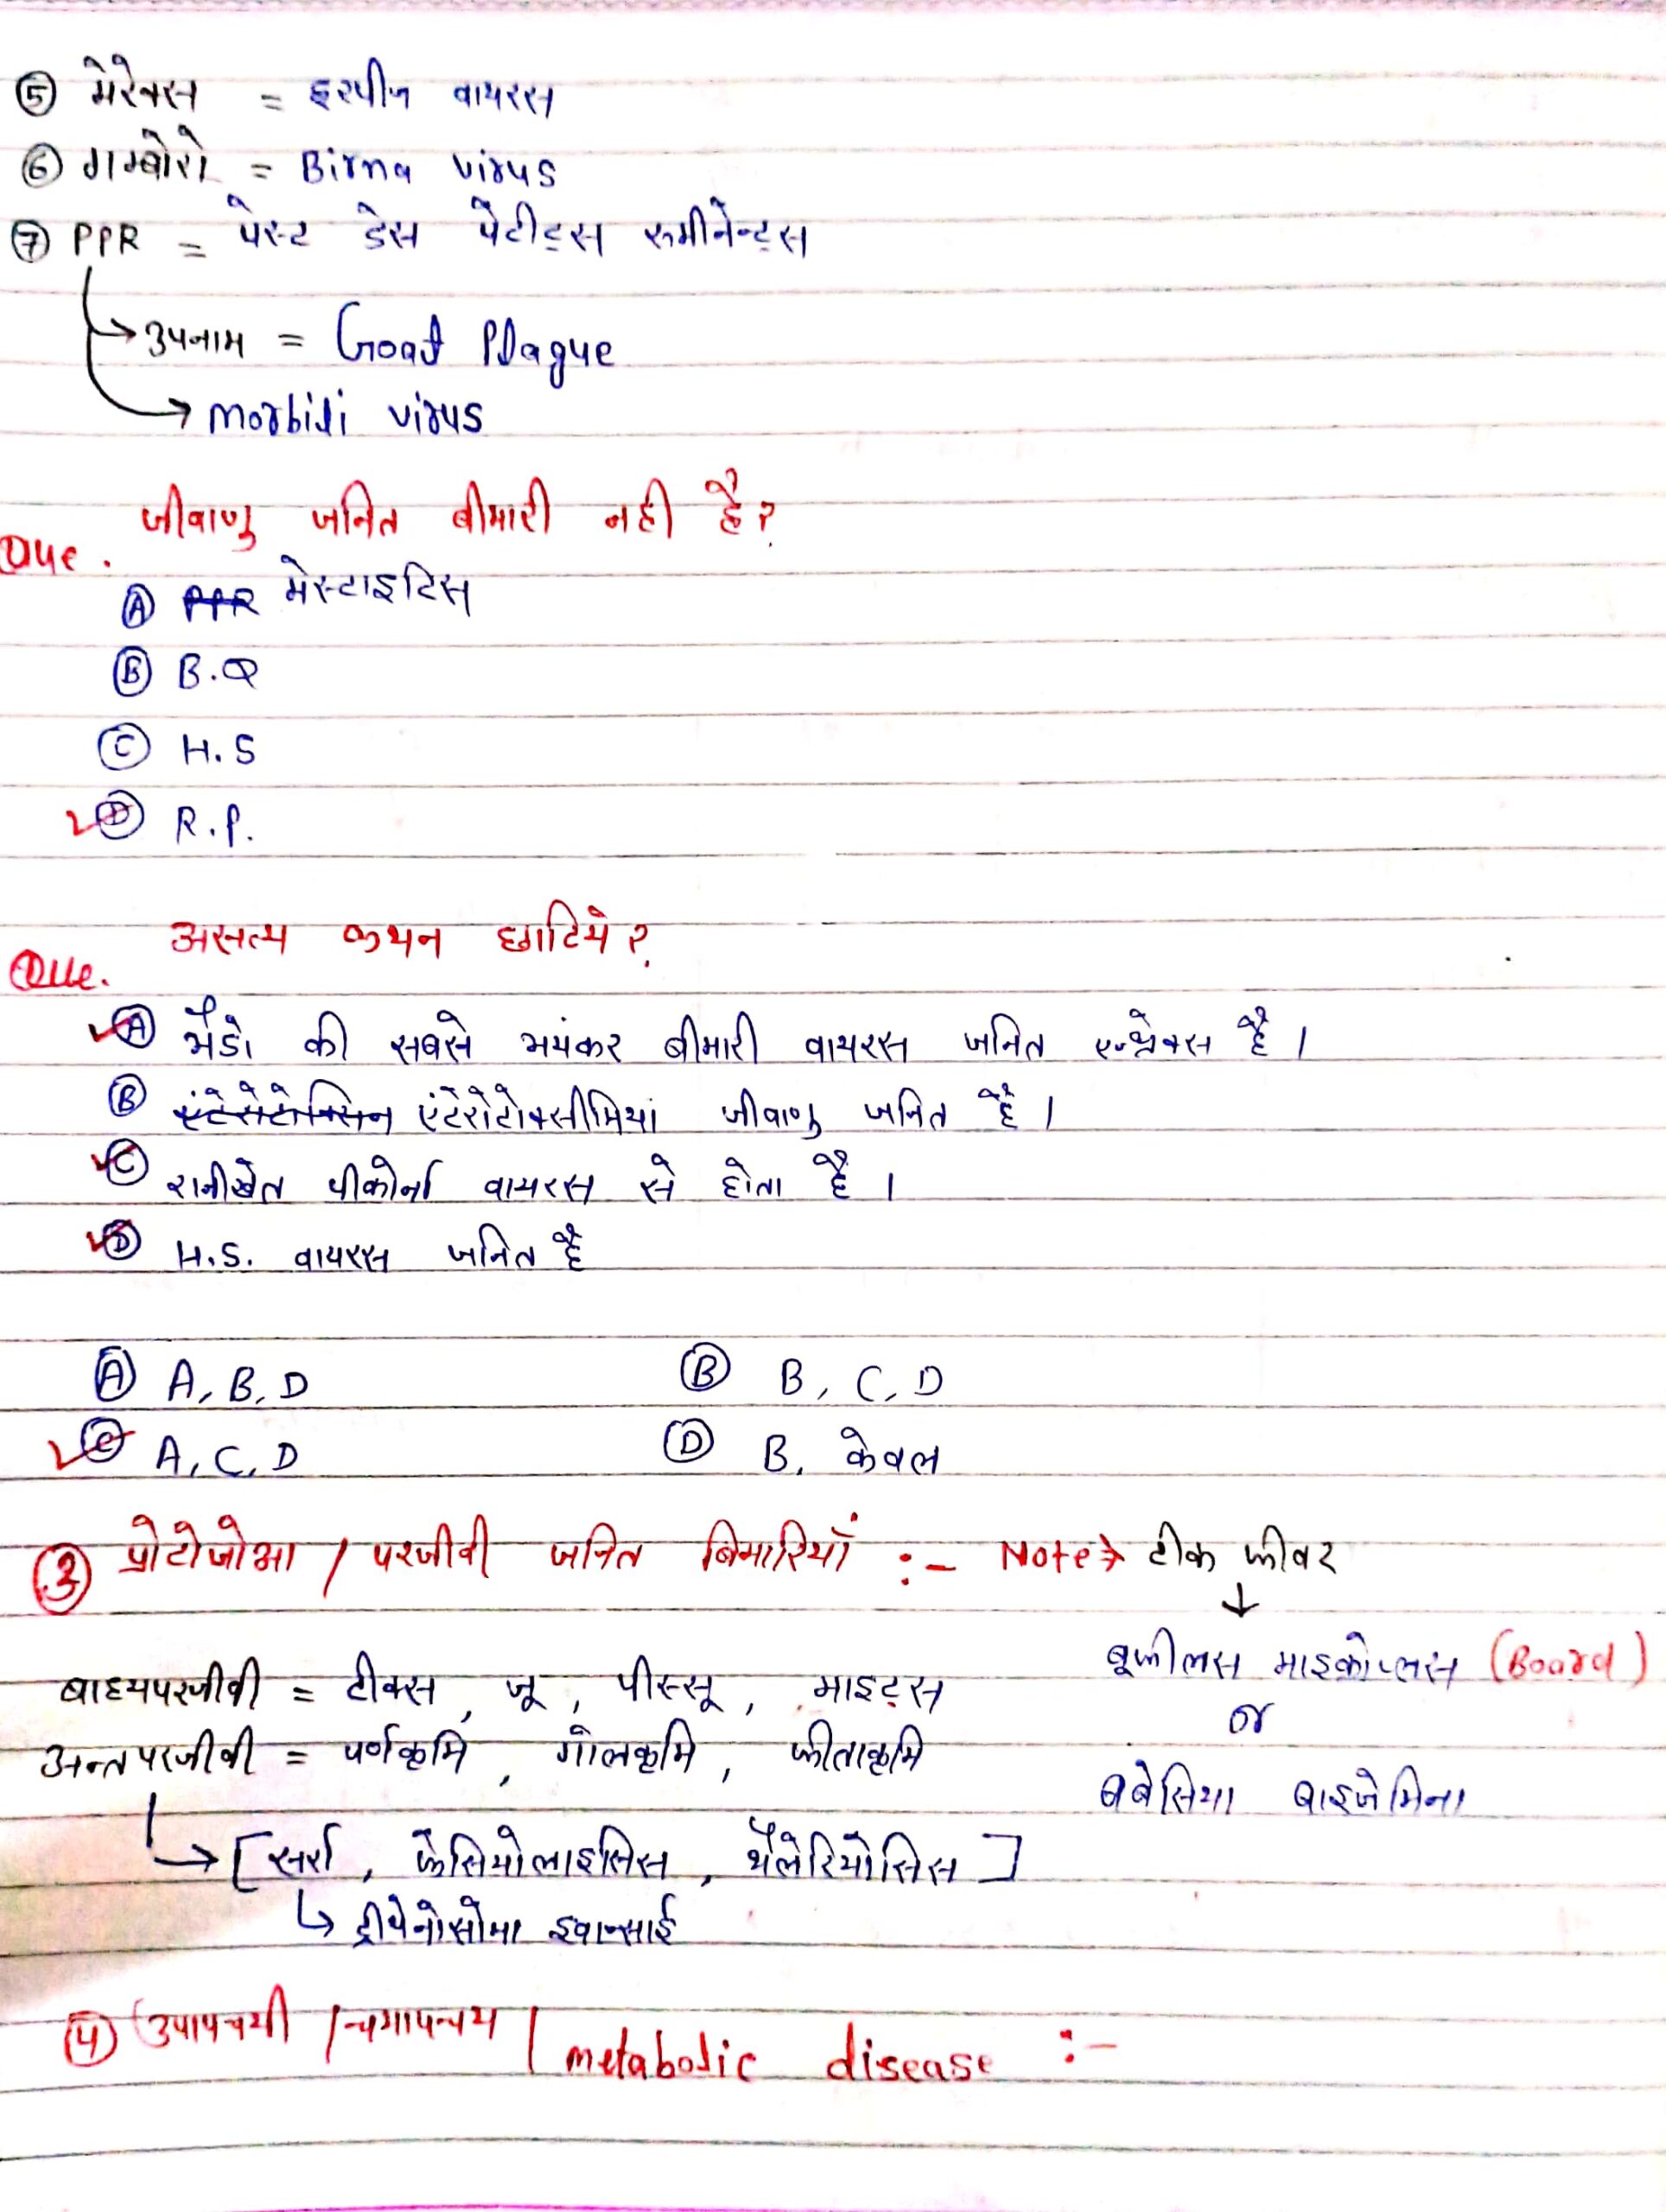 ⑤ मेरेक्स = हरपीज वायरस
⑥ गम्बोरो = Birna virus
⑦ PPR = पेस्ट डेस पेटीट्स रूमीनेन्ट्स
→ उपनाम = Goat Plague
→ morbili virus
Que. जीवाणु जनित बीमारी नही है?
Ⓐ PPR मेस्टाइटिस
Ⓑ B.Q
Ⓒ H.S
Ⓓ R.P.
Que. असत्य कथन छाटिये?
Ⓐ भैंडो की सबसे भयंकर बीमारी वायरस जनित एन्थ्रेक्स है।
Ⓑ एंटेरोटोक्सिन एंटेरोटोक्सीमियां जीवाणु जनित है।
Ⓒ रानीखेत पीकोर्ना वायरस से होता है।
Ⓓ H.S. वायरस जनित है
Ⓐ A, B, D Ⓑ B, C, D
Ⓒ A, C, D Ⓓ B, केवल
③ प्रोटोजोआ / परजीवी जनित बिमारियाँ :- Note→ टीक फीवर
↓
बूफीलस माइक्रोप्लस (Board)
बाह्यपरजीवी = टीक्स, जू, पीस्सू, माइट्स
or
अन्तपरजीवी = पर्णकृमि, गोलकृमि, फीताकृमि
बबेसिया बाइजेमिना
→ [सर्रा, फैसियोलाइसिस, थैलेरियोसिस]
↳ ट्रीपेनोसोमा इवान्साई
④ उपापचयी / चयापचय / metabolic disease :-